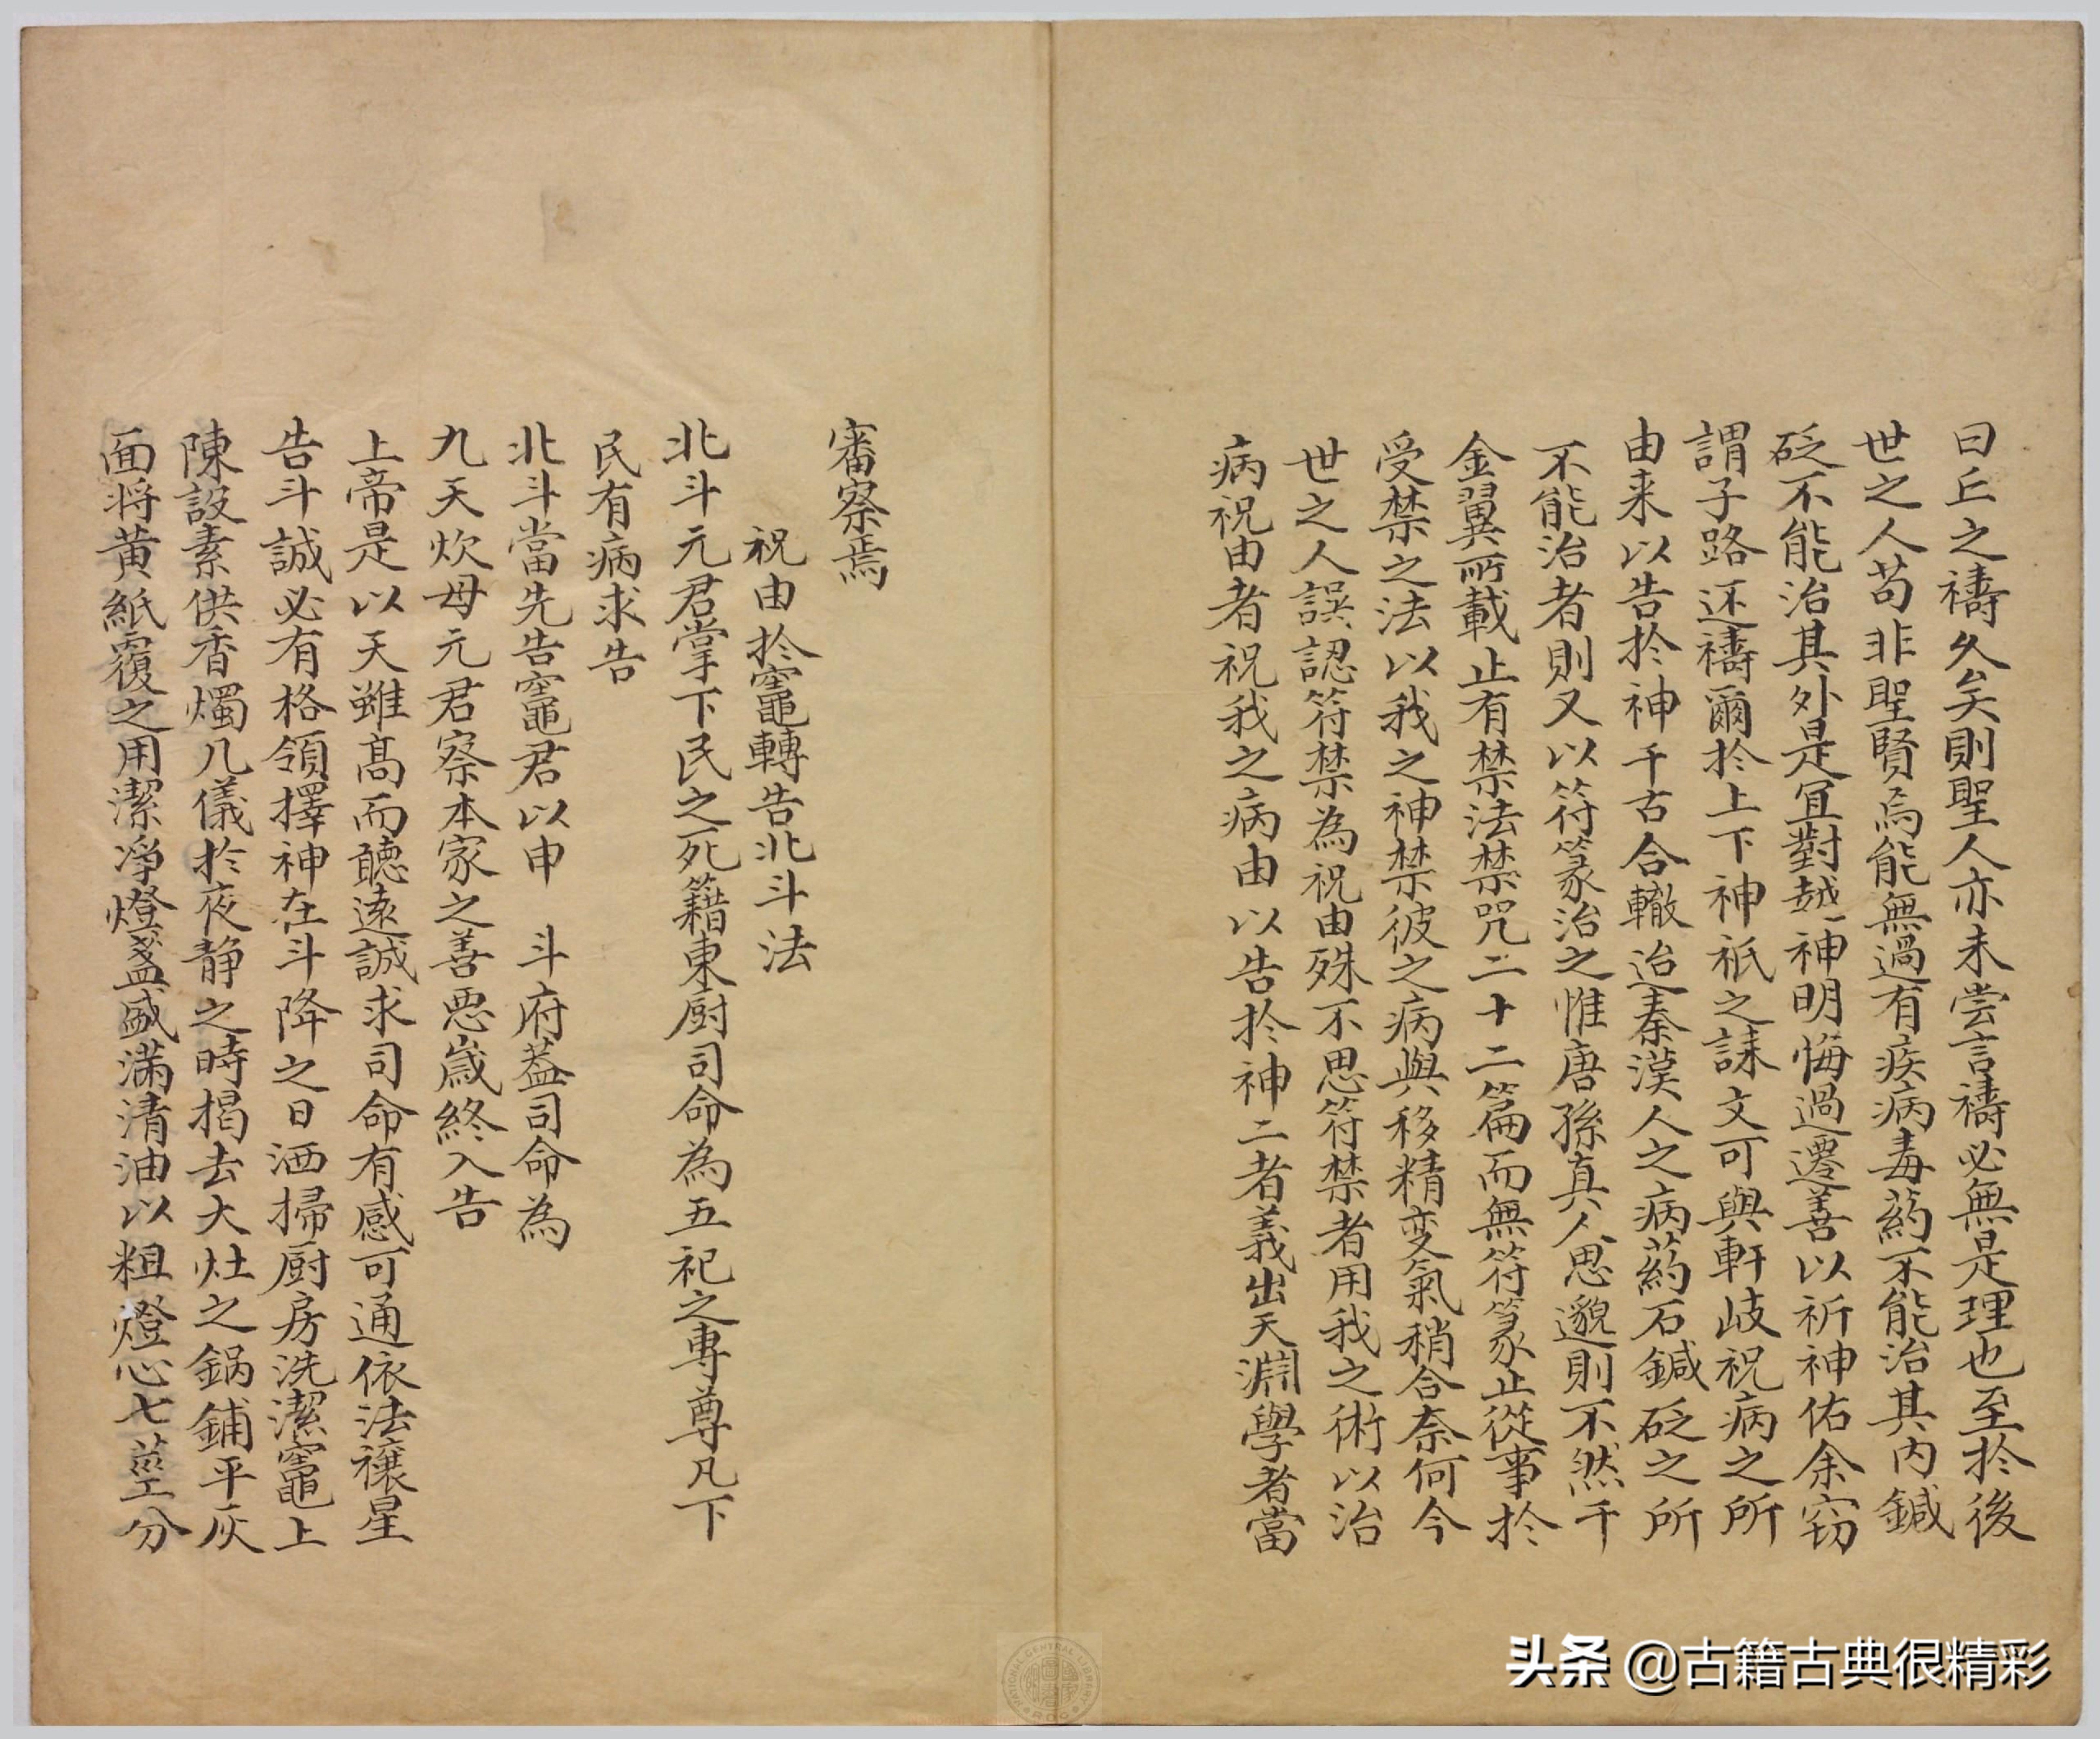 曰丘之禱久矣則聖人亦未嘗言禱必無是理也至於後
世之人苟非聖賢焉能無過有疾病毒药不能治其内鍼
砭不能治其外是宜對越神明悔過遷善以祈神佑余窃
謂子路还禱爾於上下神祇之誄文可與軒岐祝病之所
由来以告於神千古合轍迨秦漢人之病药石鍼砭之所
不能治者則又以符篆治之惟唐孫真人思邈則不然千
金翼所載止有禁法禁咒二十二篇而無符篆止從事於
受禁之法以我之神禁彼之病與移精变氣稍合奈何今
世之人誤認符禁為祝由殊不思符禁者用我之術以治
病祝由者祝我之病由以告於神二者義出天淵學者當
審察焉
祝由於竈轉告北斗法
北斗元君掌下民之死籍東厨司命為五祀之專尊凡下
民有病求告
北斗當先告竈君以申 斗府蓋司命為
九天炊母元君察本家之善悪歲終入告
上帝是以天雖髙而聽遠誠求司命有感可通依法禳星
告斗誠必有格領擇神在斗降之日洒掃厨房洗潔竈上
陳設素供香燭几儀於夜静之時揭去大灶之鍋鋪平灰
面将黄紙覆之用潔凈燈盞盛滿清油以粗燈心七莖分
头条 @古籍古典很精彩
NATIONAL CENTRAL LIBRARY
R.O.C.